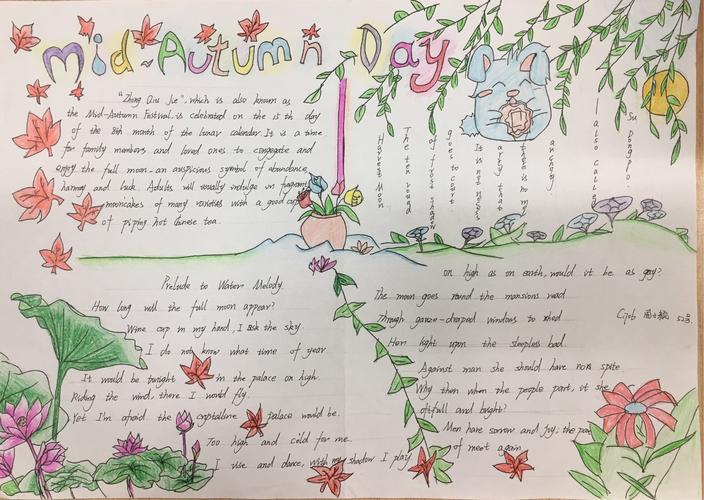 Mid-Autumn Day
"Zhong Qiu Jie", which is also known as
the Mid-Autumn Festival, is celebrated on the 15 th day
of the 8th month of the lunar calendar. It is a time
for family members and loved ones to congregate and
enjoy the full moon-an auspicious symbol of abundance,
harmony and luck. Adults will usually indulge in fragrant
mooncakes of many varieties with a good cup
of piping hot Chinese tea.
Su Dongpo.
I also call
anxiety
there is no my
It is not
goes to court
of frost shadow
The ten round
Harvest Moon
Prelude to Water Melody.
How long will the full moon appear?
Wine cup in my hand, I ask the sky.
I do not know what time of year
It would be tonight in the palace on high.
Riding the wind, there I would fly,
Yet I'm afraid the crystalline palace would be.
Too high and cold for me.
I rise and dance, With my shadow I play
on high as on earth, would it be as gay?
The moon goes round the mansions red
Through gauze-draped windows to shed
Her light upon the sleepless bed.
Against man she should have no spite
Why then when the people part, is she
oft full and bright?
Men have sorrow and joy; the part
of meet again